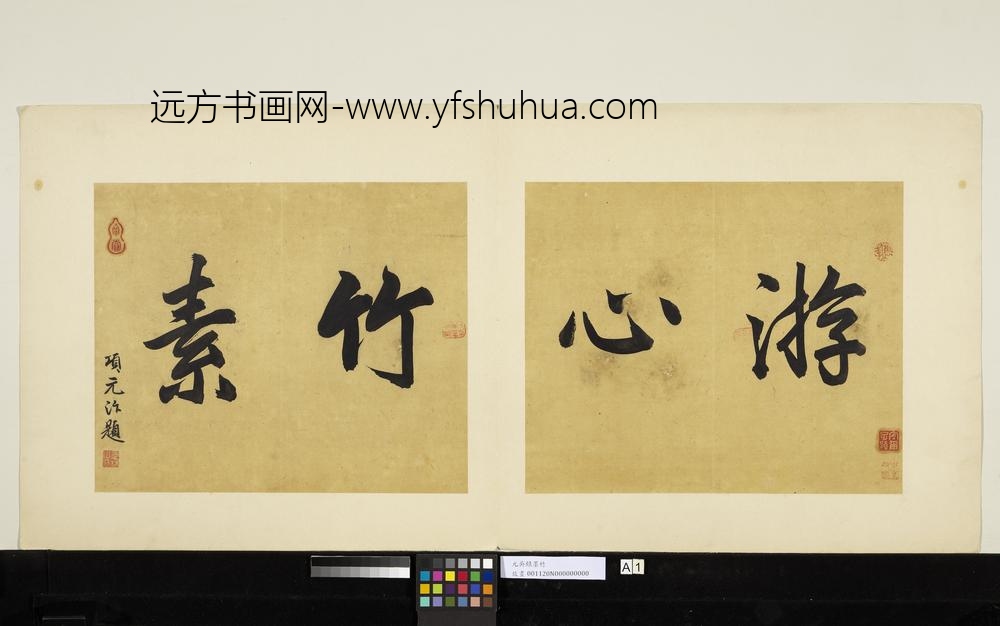 远方书画网-www.yfshuhua.com
游心
竹素
項元汴題
元吳鎮墨竹
故畫 001120N000000000
A 1